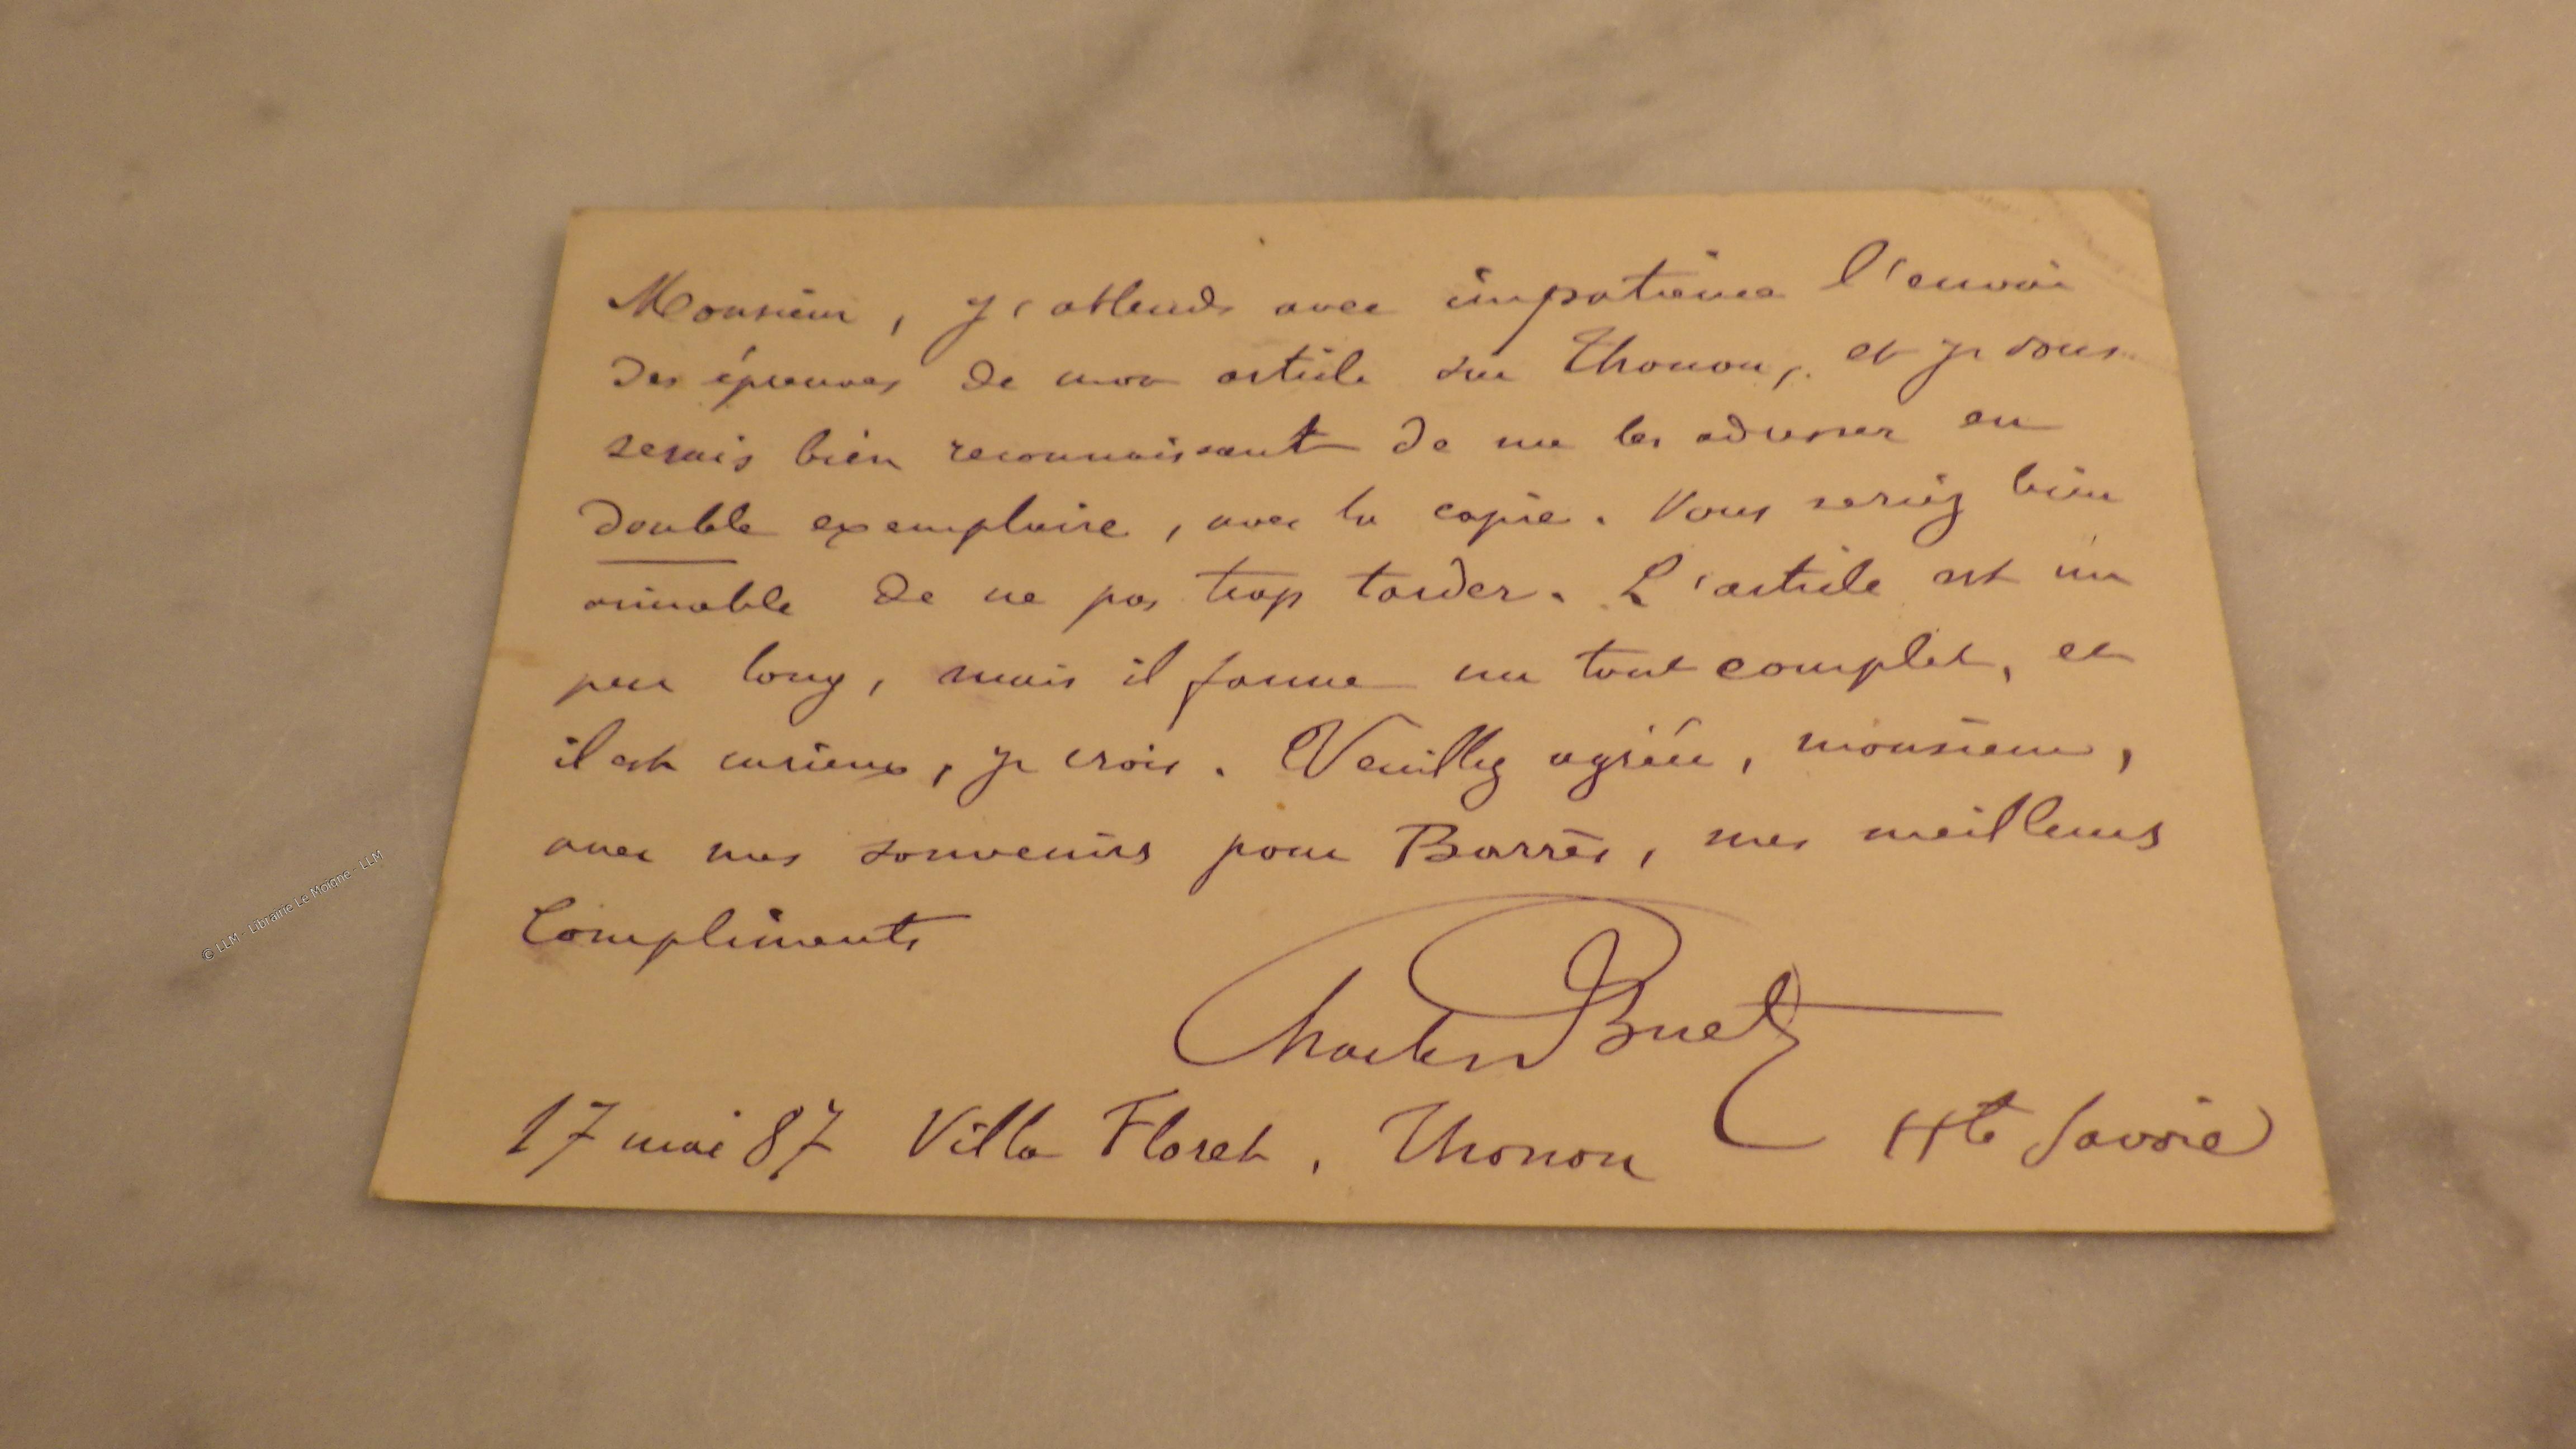 Monsieur, j'attends avec impatience l'envoi
des épreuves de mon article sur Thonon, et je vous
serais bien reconnaissant de me les adresser en
double exemplaire, avec la copie. Vous seriez bien
aimable de ne pas trop tarder. L'article est un
peu long, mais il forme un tout complet, et
il est curieux, je crois. Veuillez agréer, monsieur,
avec mes souvenirs pour Barrès, mes meilleurs
Compliments
Charles Buet
17 mai 87 Villa Floret, Thonon Hte Savoie
© LLM - Librairie Le Moigne - LLM